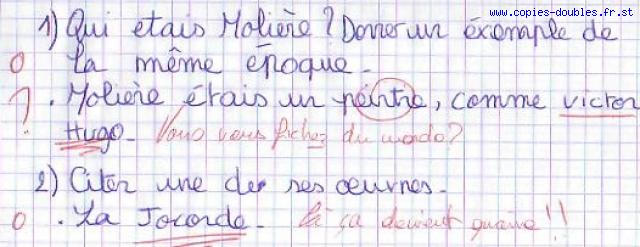 www.copies-doubles.fr.st
1) Qui etais Molière ? Donner un exemple de
0 la même époque.
? . Molière étais un peintre, comme victor
Hugo. Vous vous fichez du monde ?
2) Citer une de ses oeuvres.
0 . La Joconde. Là ça devient grave !!